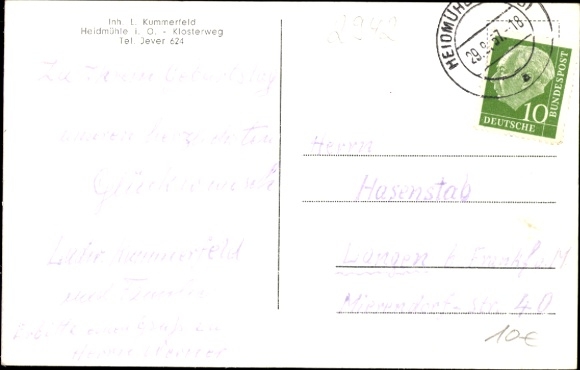 Inh. L. Kummerfeld
Heidmühle i. O. - Klosterweg
Tel. Jever 624
Geburtstag
unseren herzlichsten
Glückwunsch
Kummerfeld
und Familie
HEIDMÜHLE
29.9.57.-18
a
10
DEUTSCHE
BUNDESPOST
Herrn
Hasenstab
Langen b. Frankf. a/M
Mierendorf-str. 40
10€